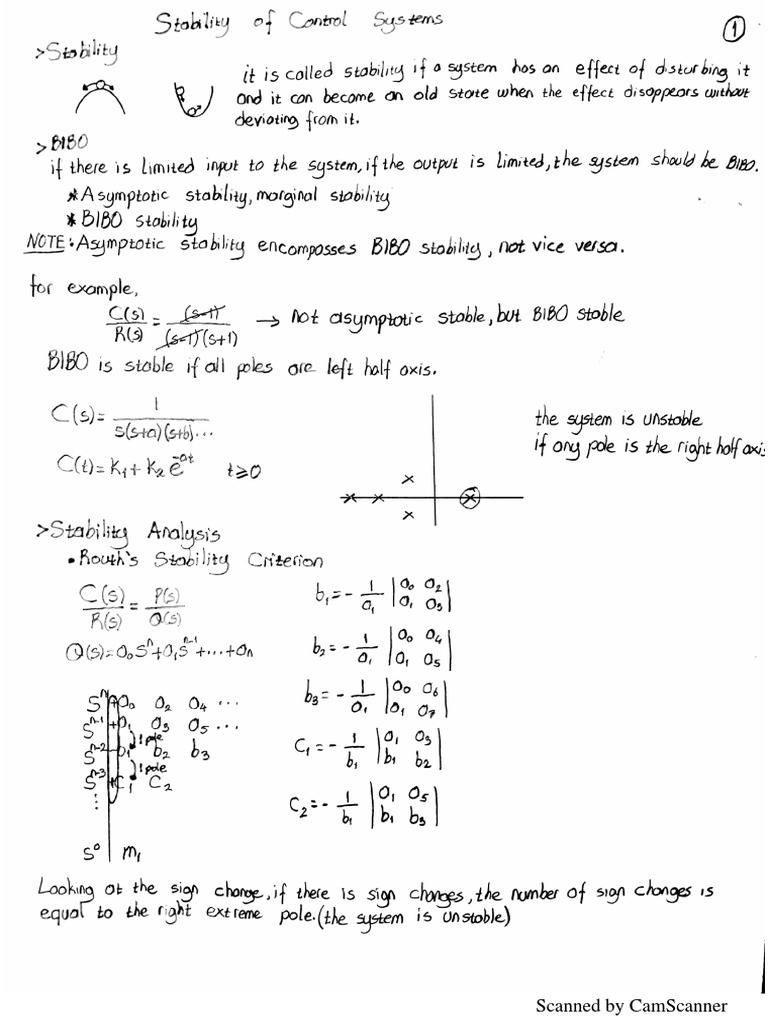 Stability of Control Systems
1
>Stability
it is called stability if a system has an effect of disturbing it
and it can become an old state when the effect disappears without
deviating from it.
>BIBO
if there is limited input to the system, if the output is limited, the system should be BIBO.
*Asymptotic stability, marginal stability
*BIBO stability
NOTE: Asymptotic stability encompasses BIBO stability, not vice versa.
for example,
C(s)/R(s) = (s-1)/(s-1)(s+1) → not asymptotic stable, but BIBO stable
BIBO is stable if all poles are left half axis.
C(s)= 1/s(s+a)(s+b)...
C(t)=K1+K2 e^-at t≥0
the system is unstable
if any pole is the right half axis
>Stability Analysis
• Routh's Stability Criterion
C(s)/R(s) = P(s)/Q(s)
Q(s)=a0 s^n+a1 s^n-1+...+an
s^n + a0 a2 a4 ...
s^n-1 + a1 a3 a5 ...
1 pole
s^n-2 -b1 b2 b3
1 pole
s^n-3 +C1 C2
...
s^0 m1
b1=- 1/a1 |a0 a2|
|a1 a3|
b2=- 1/a1 |a0 a4|
|a1 a5|
b3=- 1/a1 |a0 a6|
|a1 a7|
C1=- 1/b1 |a1 a3|
|b1 b2|
C2=- 1/b1 |a1 a5|
|b1 b3|
Looking at the sign change, if there is sign changes, the number of sign changes is
equal to the right extreme pole. (the system is unstable)
Scanned by CamScanner